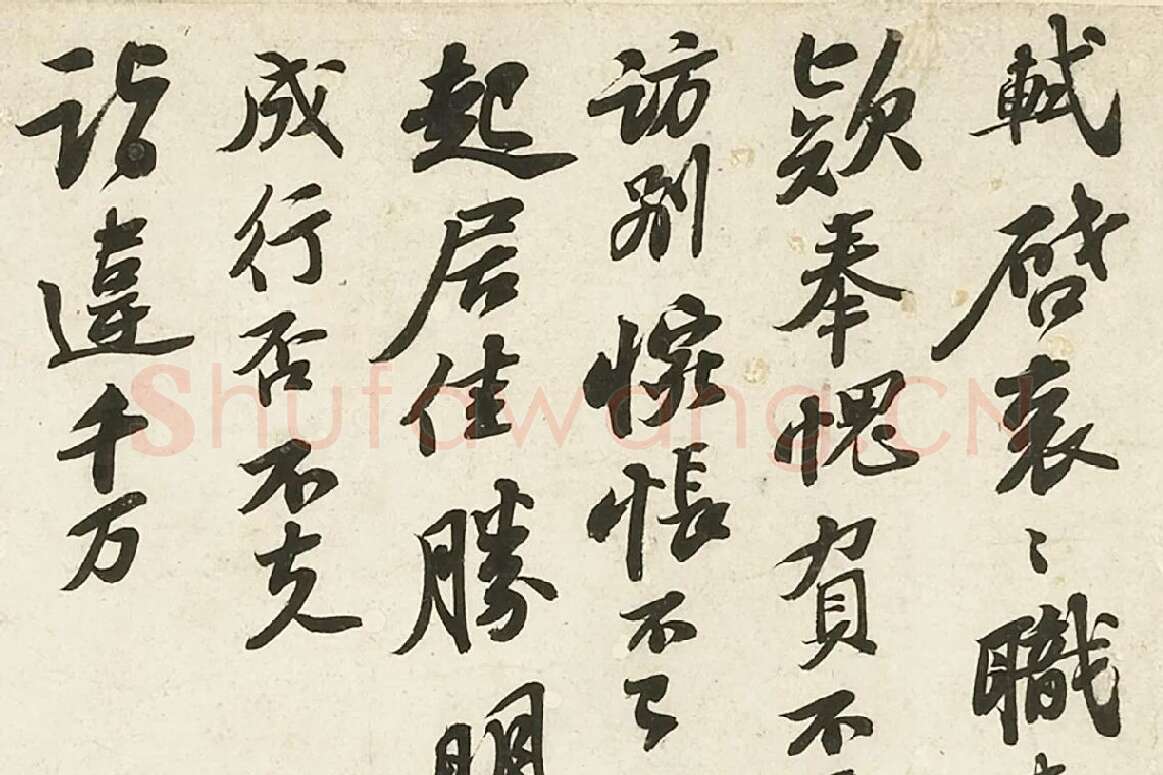 軾啓衰〻職
欵奉愧負不
訪别惋悵不已
起居佳勝明
成行否不克
詣違千万
Shufawang.CN